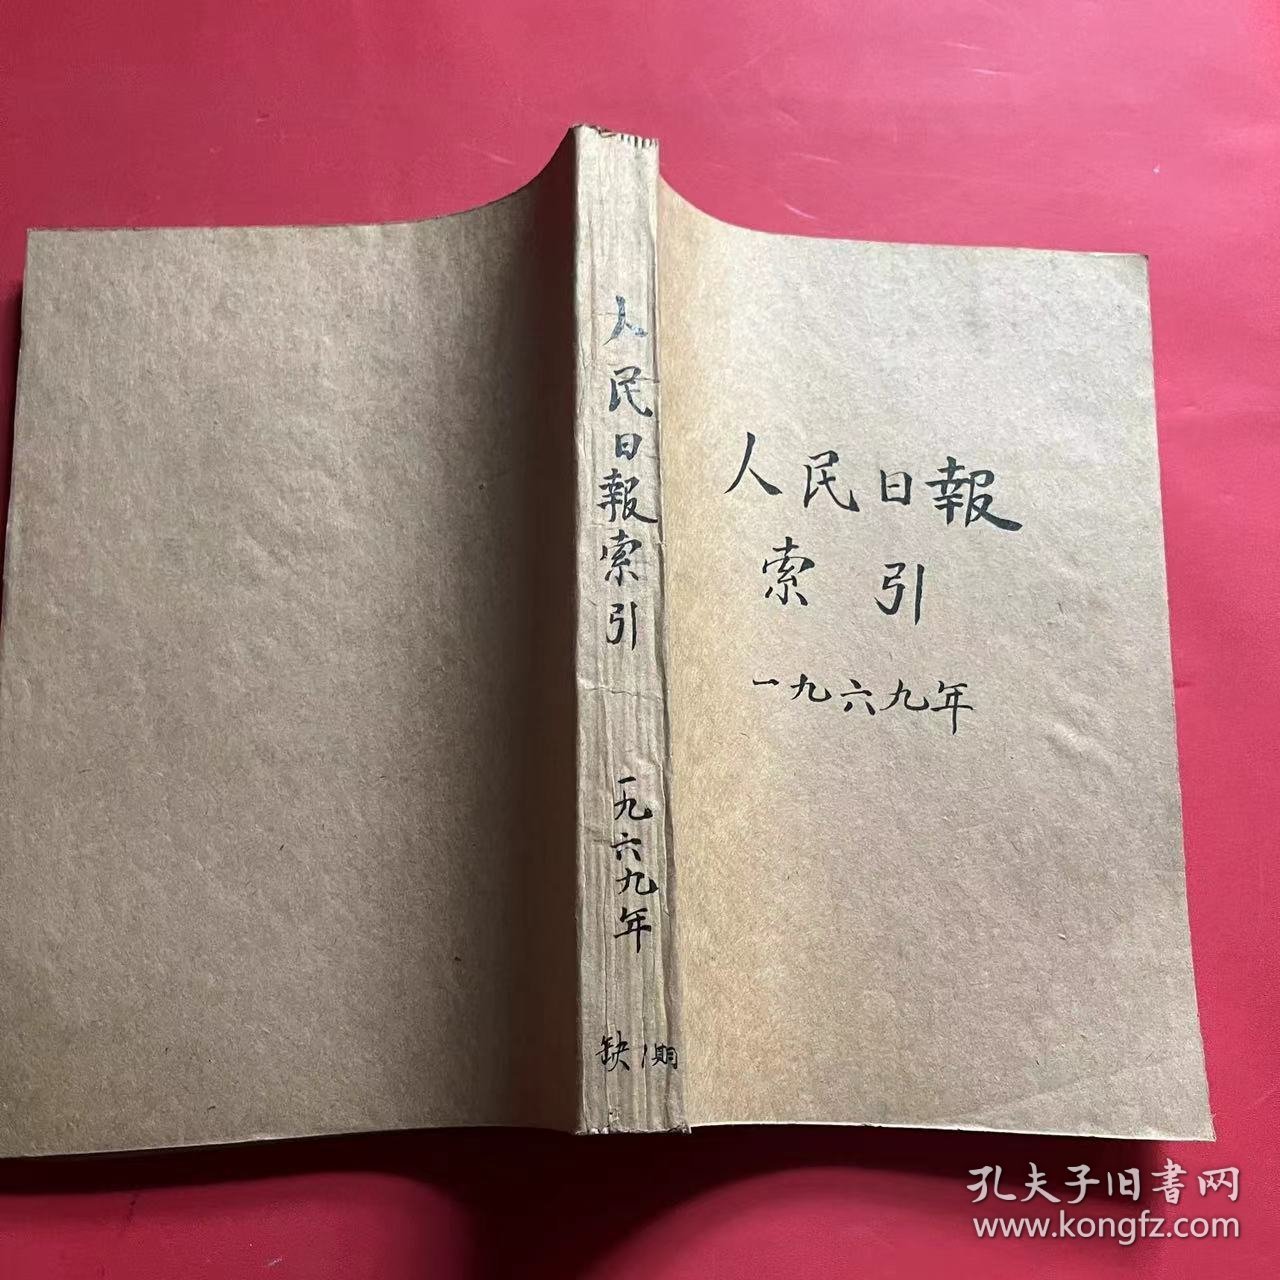 人民日報索引
一九六九年
缺1期
人民日報
索引
一九六九年
孔夫子旧書网
www.kongfz.com